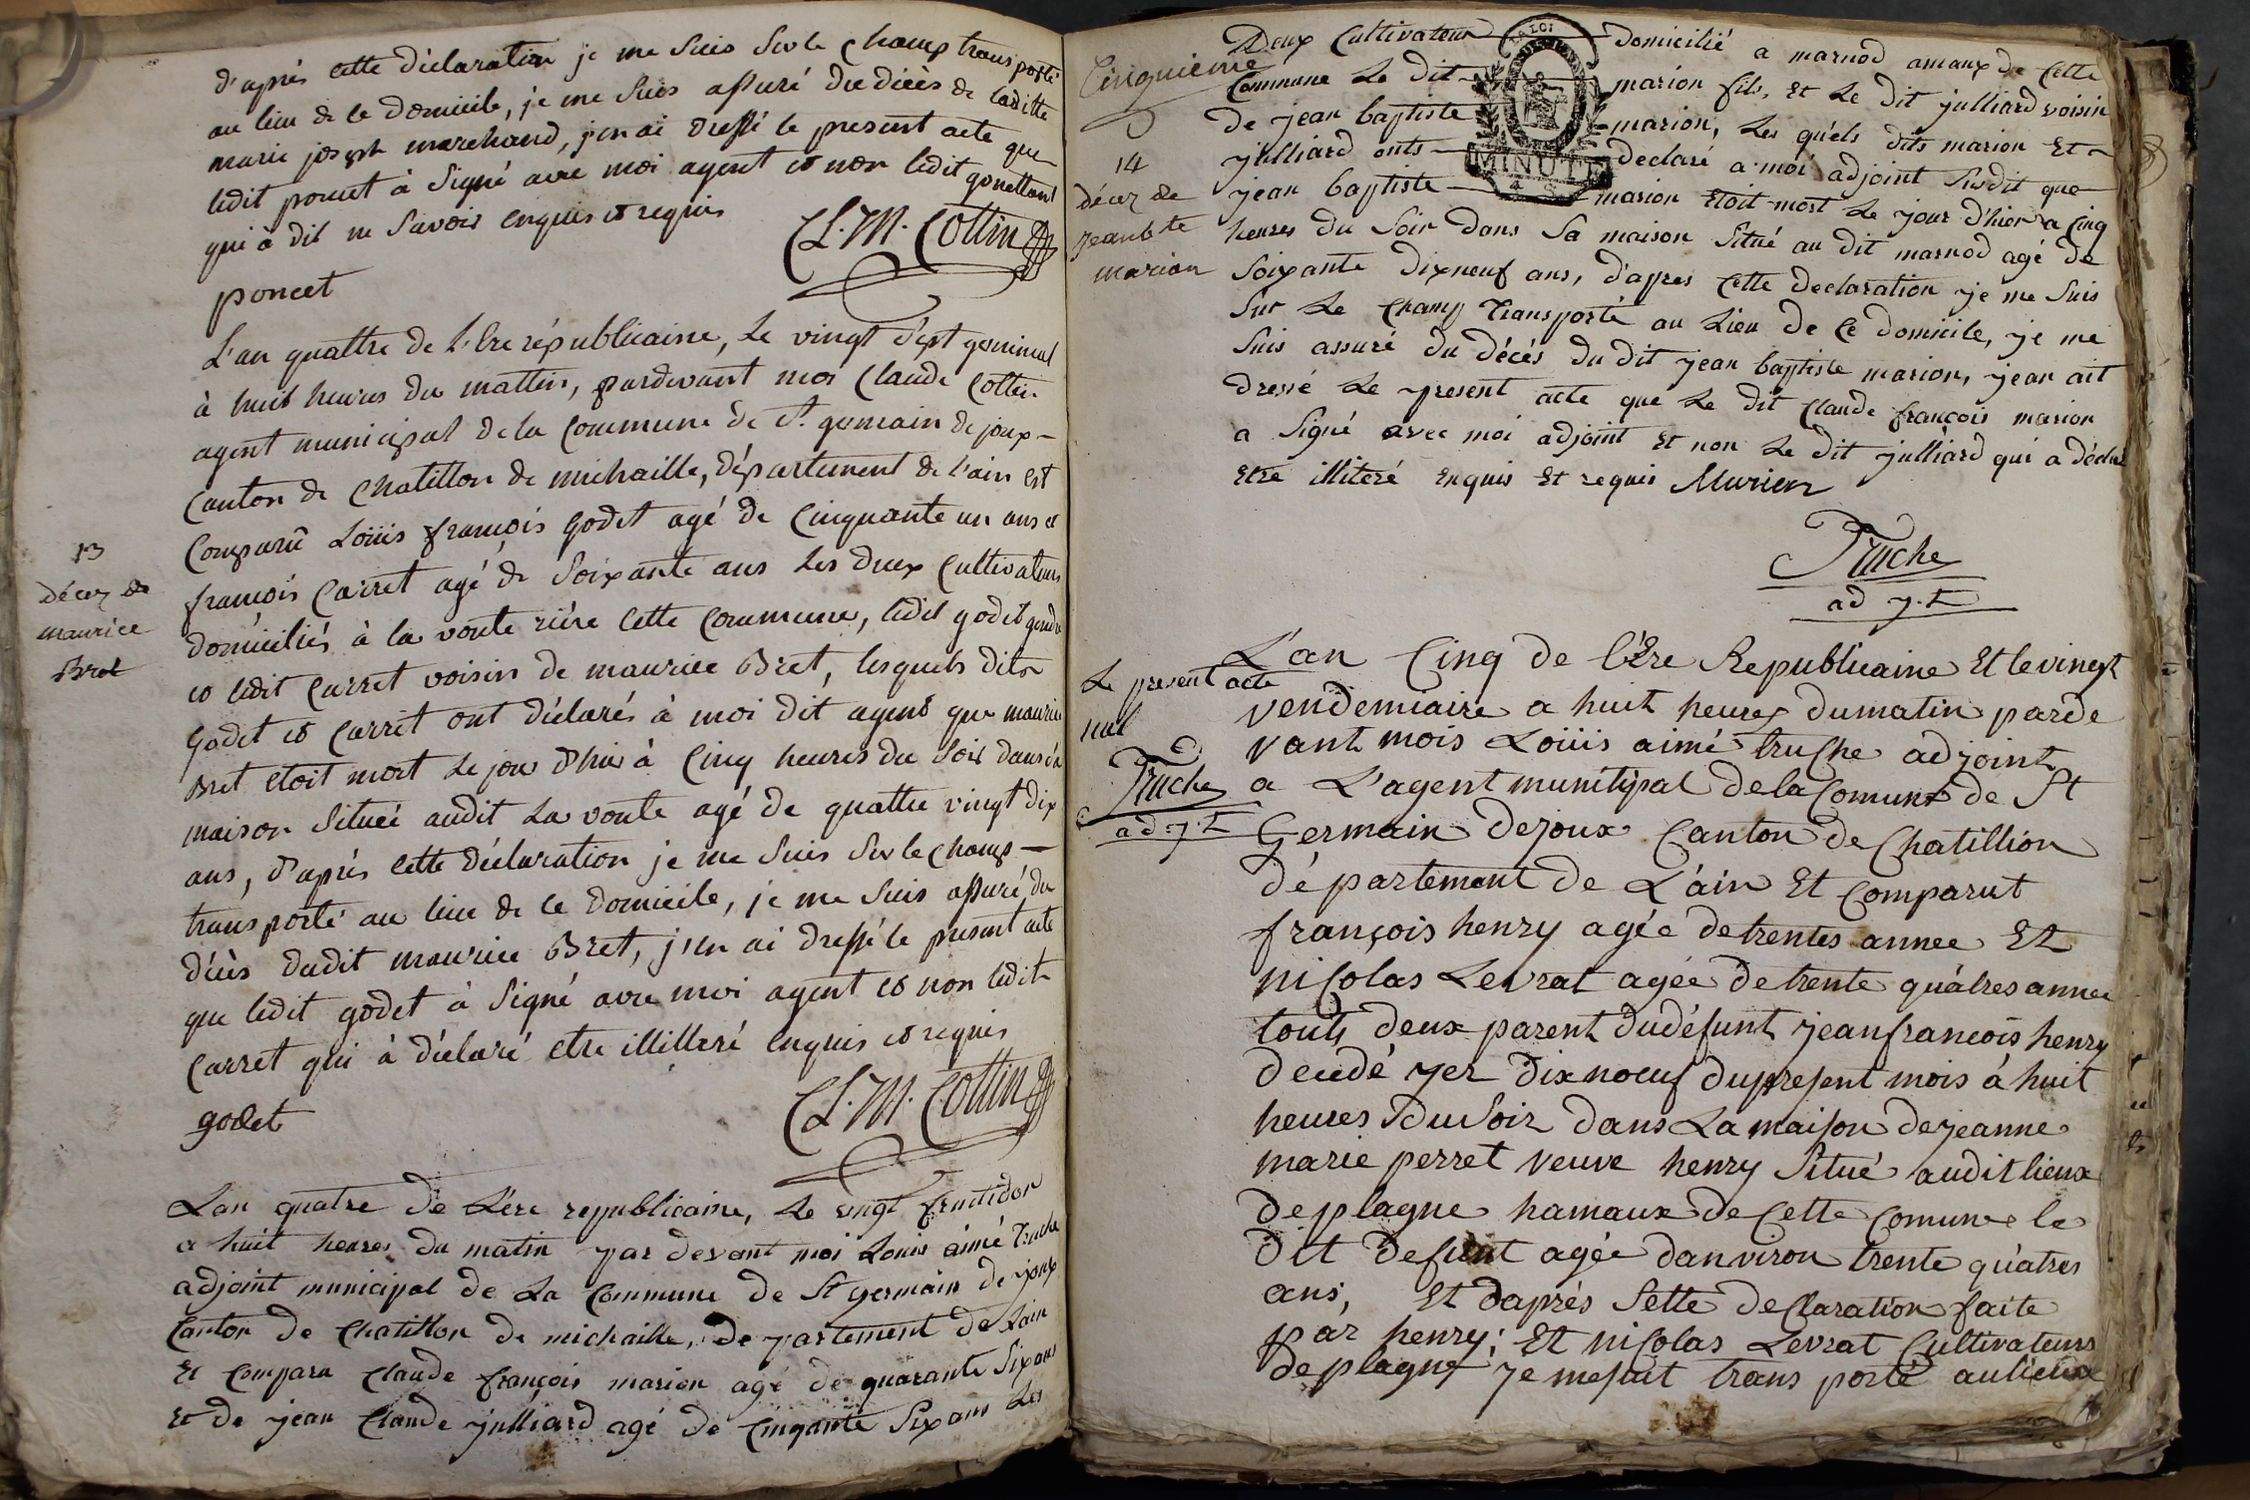 d'après cette déclaration je me suis sur le champ transporté
au lieu de ce domicile, je me suis assuré du décès de laditte
marie joseph marchand, j'en ai dressé le present acte que
ledit poncet à signé avec moi agent et non ledit
qui à dit ne savoir enquis et requis
Cl. M. Cottin
poncet
L'an quattre de l'Ere républicaine, le vingt sept germinal
à huit heures du mattin, pardevant moi Claude Cottin
agent municipal de la Commune de St. germain de joux
Canton de Chatillon de michaille, département de l'ain est
Comparû Loüis françois godet agé de Cinquante un ans et
françois Carret agé de soixante ans les deux Cultivateurs
domiciliés à la voute rière cette Commune, ledit godet gendre
et ledit Carret voisin de maurice Bret, lesquels dits
godet et Carret ont déclarés à moi dit agent que maurice
Bret etoit mort le jour d'hier à Cinq heures du soir dans sa
maison située audit La voute agé de quattre vingt dix
ans, d'après cette déclaration je me suis sur le champ
transporté au lieu de ce domicile, je me suis assuré du
décès dudit maurice Bret, j'en ai dressé le present acte
que ledit godet à signé avec moi agent et non ledit
Carret qui à déclaré etre illitteré enquis et requis
Cl. M. Cottin
godet
13
décez de
maurice
Bret
Lan quatre de L'ére republicaine, Le vingt fructidor
a huit heures du matin par devant moi Louis aimé truche
adjoint municipal de La Commune de St germain de joux
Canton de Chatillon de michaille, de partement de Lain
Et Compara Claude françois marion agé de quarante six ans
Et de jean Claude julliard agé de Cinqante Six ans Les
Cinquieme
LA LOI
MINUTE
Deux Cultivateur domicilié a marnod amaux de Cette
Commune Le dit marion fils, Et Le dit julliard voisin
de jean baptiste marion, Les quéls dits marion Et
julliard onts declaré a moi adjoint Susdit que
jean baptiste marion Etoit mort Le jour d'hier a Cinq
heures du Soir dans Sa maison Situé au dit marnod agé de
Soixante dixneuf ans, d'apres Cette declaration je me Suis
Sur Le Champ transporté au Lieu de Ce domicile, je me
Suis assuré du décés du dit jean baptiste marion, jean ait
dressé Le present acte que Le dit Claude françois marion
a Signé avec moi adjoint Et non Le dit julliard qui a déclaré
Etre illiteré Enquis Et requis Murion
Truche
adj.t
14
décez de
jean bte
marion
L'an Cinq de l'Ere Republicaine Et le vingt
vendemiaire a huit heures du matin parde
vant mois Loüis aimé truche adjoint
a L'agent munitipal de la Comune de St
Germain dejoux Canton de Chatillion
département de L'ain Et Comparut
françois henry agée de trentes annee Et
nicolas Levrat agée de trente quâtres annee
touts deux parent du défunt jeanfrancois henry
decidé yer dix noeuf du present mois à huit
heures du soir dans La maison de jeanne
marie perret veuve henry Situé audit lieux
de plagne hamaux de Cette Comune le
dit defunt agée danviron trente quâtres
ans, Et daprés Sette declaration faite
par henry; Et nicolas Levrat Cultivateurs
de plagne je mesuit trans porté au lieux
Le present acte
nul
Truche
adj.t